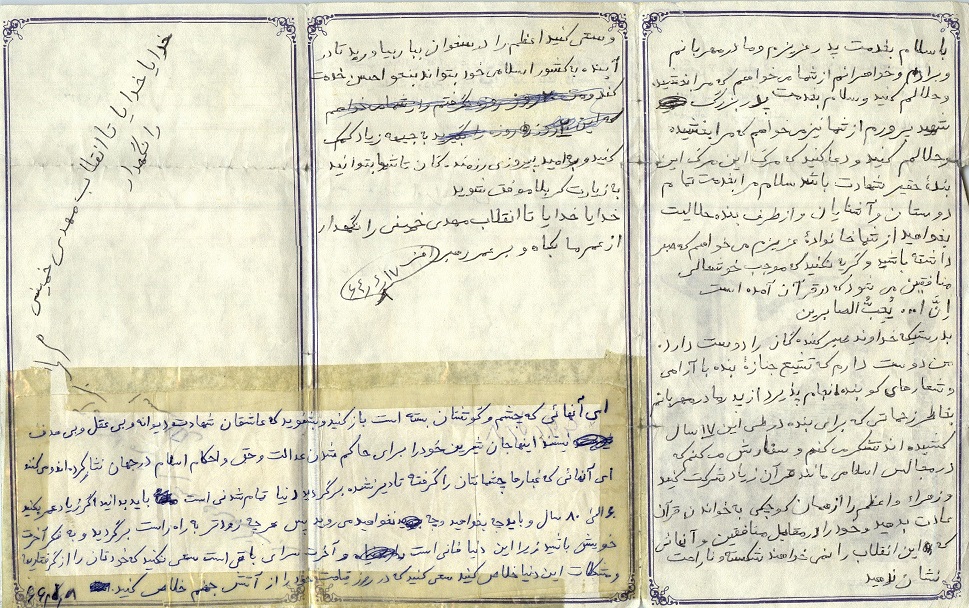 با سلام بخدمت پدر عزیزم و مادر مهربانم
و برادرم و خواهرانم از شما میخواهم که مرا ببخشید
و حلالم کنید و سلام بخدمت پدر بزرگ
شهید پرورم از شما نیز میخواهم که مرا بخشیده
و حلالم کنید و دعا کنید که مرگ این مرگ این
بندهٔ حقیر شهادت باشد سلام مرا بخدمت تمام
دوستان و آشنایان و از طرف بنده حلالیت
بخواهید از شما خانوادهٔ عزیزم می خواهم که صبر
داشته باشید و گریه نکنید که موجب خوشحالی
منافقین می شود که در قرآن آمده است
اِنَّ ا... یُحِبُّ الصابرین
بدرستیکه خداوند صبر کننده گان را دوست دارد.
من دوست دارم که تشییع جنازهٔ بنده با آرامی
و شعارهای کوبنده انجام پذیرد از پدر و مادر مهربانم
بخاطر زحماتی که برای بنده در طی این ۱۷ سال
کشیده اند تشکر می کنم و سفارش می کنم که
در مجالس اسلامی مانند قرآن زیاد شرکت کنید
و زهرا و اعظم را از همان کوچکی به خواندن قرآن
عادت بدهید و خود را در مقابل منافقین و آنهائی
که این انقلاب را نمی خواهند شکسته و ناراحت
نشان ندهید
و سعی کنید اعظم را در دبستان ببار بیاورید تا در
آینده به کشور اسلامی خود بتواند بنحو احسن خدمت
کند
به جبهه زیاد کمک
کنید و به امید پیروزی رزمنده گان تا شما بتوانید
به زیارت کربلا موفق شوید
خدایا خدایا تا انقلاب مهدی خمینی را نگهدار
از عمر ما بکاه و بر عمر رهبر افزا
۶۴٫۶٫۱۷
خدایا خدایا تا انقلاب مهدی خمینی
را نگهدار
ای آنهائی که چشم و گوشتان بسته است باز کنید و بشنوید که عاشقان شهادت دیوانه و بی عقل و بی هدف
نیستند اینها جان شیرین خود را برای حاکم شدن عدالت و حق و احکام اسلام در جهان نثار کرده اند و می کنند
ای آنهائی که غبارها چشمانتان را گرفته تا دیر نشده برگردید دنیا تمام شدنی است باید بدانید اگر زیاد عمر بکنید
۶۰ الی ۸۰ سال و باید چه بخواهید و چه نخواهید می روید پس هر چه زودتر به راه راست برگردید و به فکر آخرت
خویش باشید زیرا این دنیا فانی است و آخرت سرای باقی است سعی نکنید که خودتان را از گرفتاریها
و مشکلات این دنیا خلاص کنید سعی کنید که در روز قیامت خود را از آتش جهنم خلاص کنید.